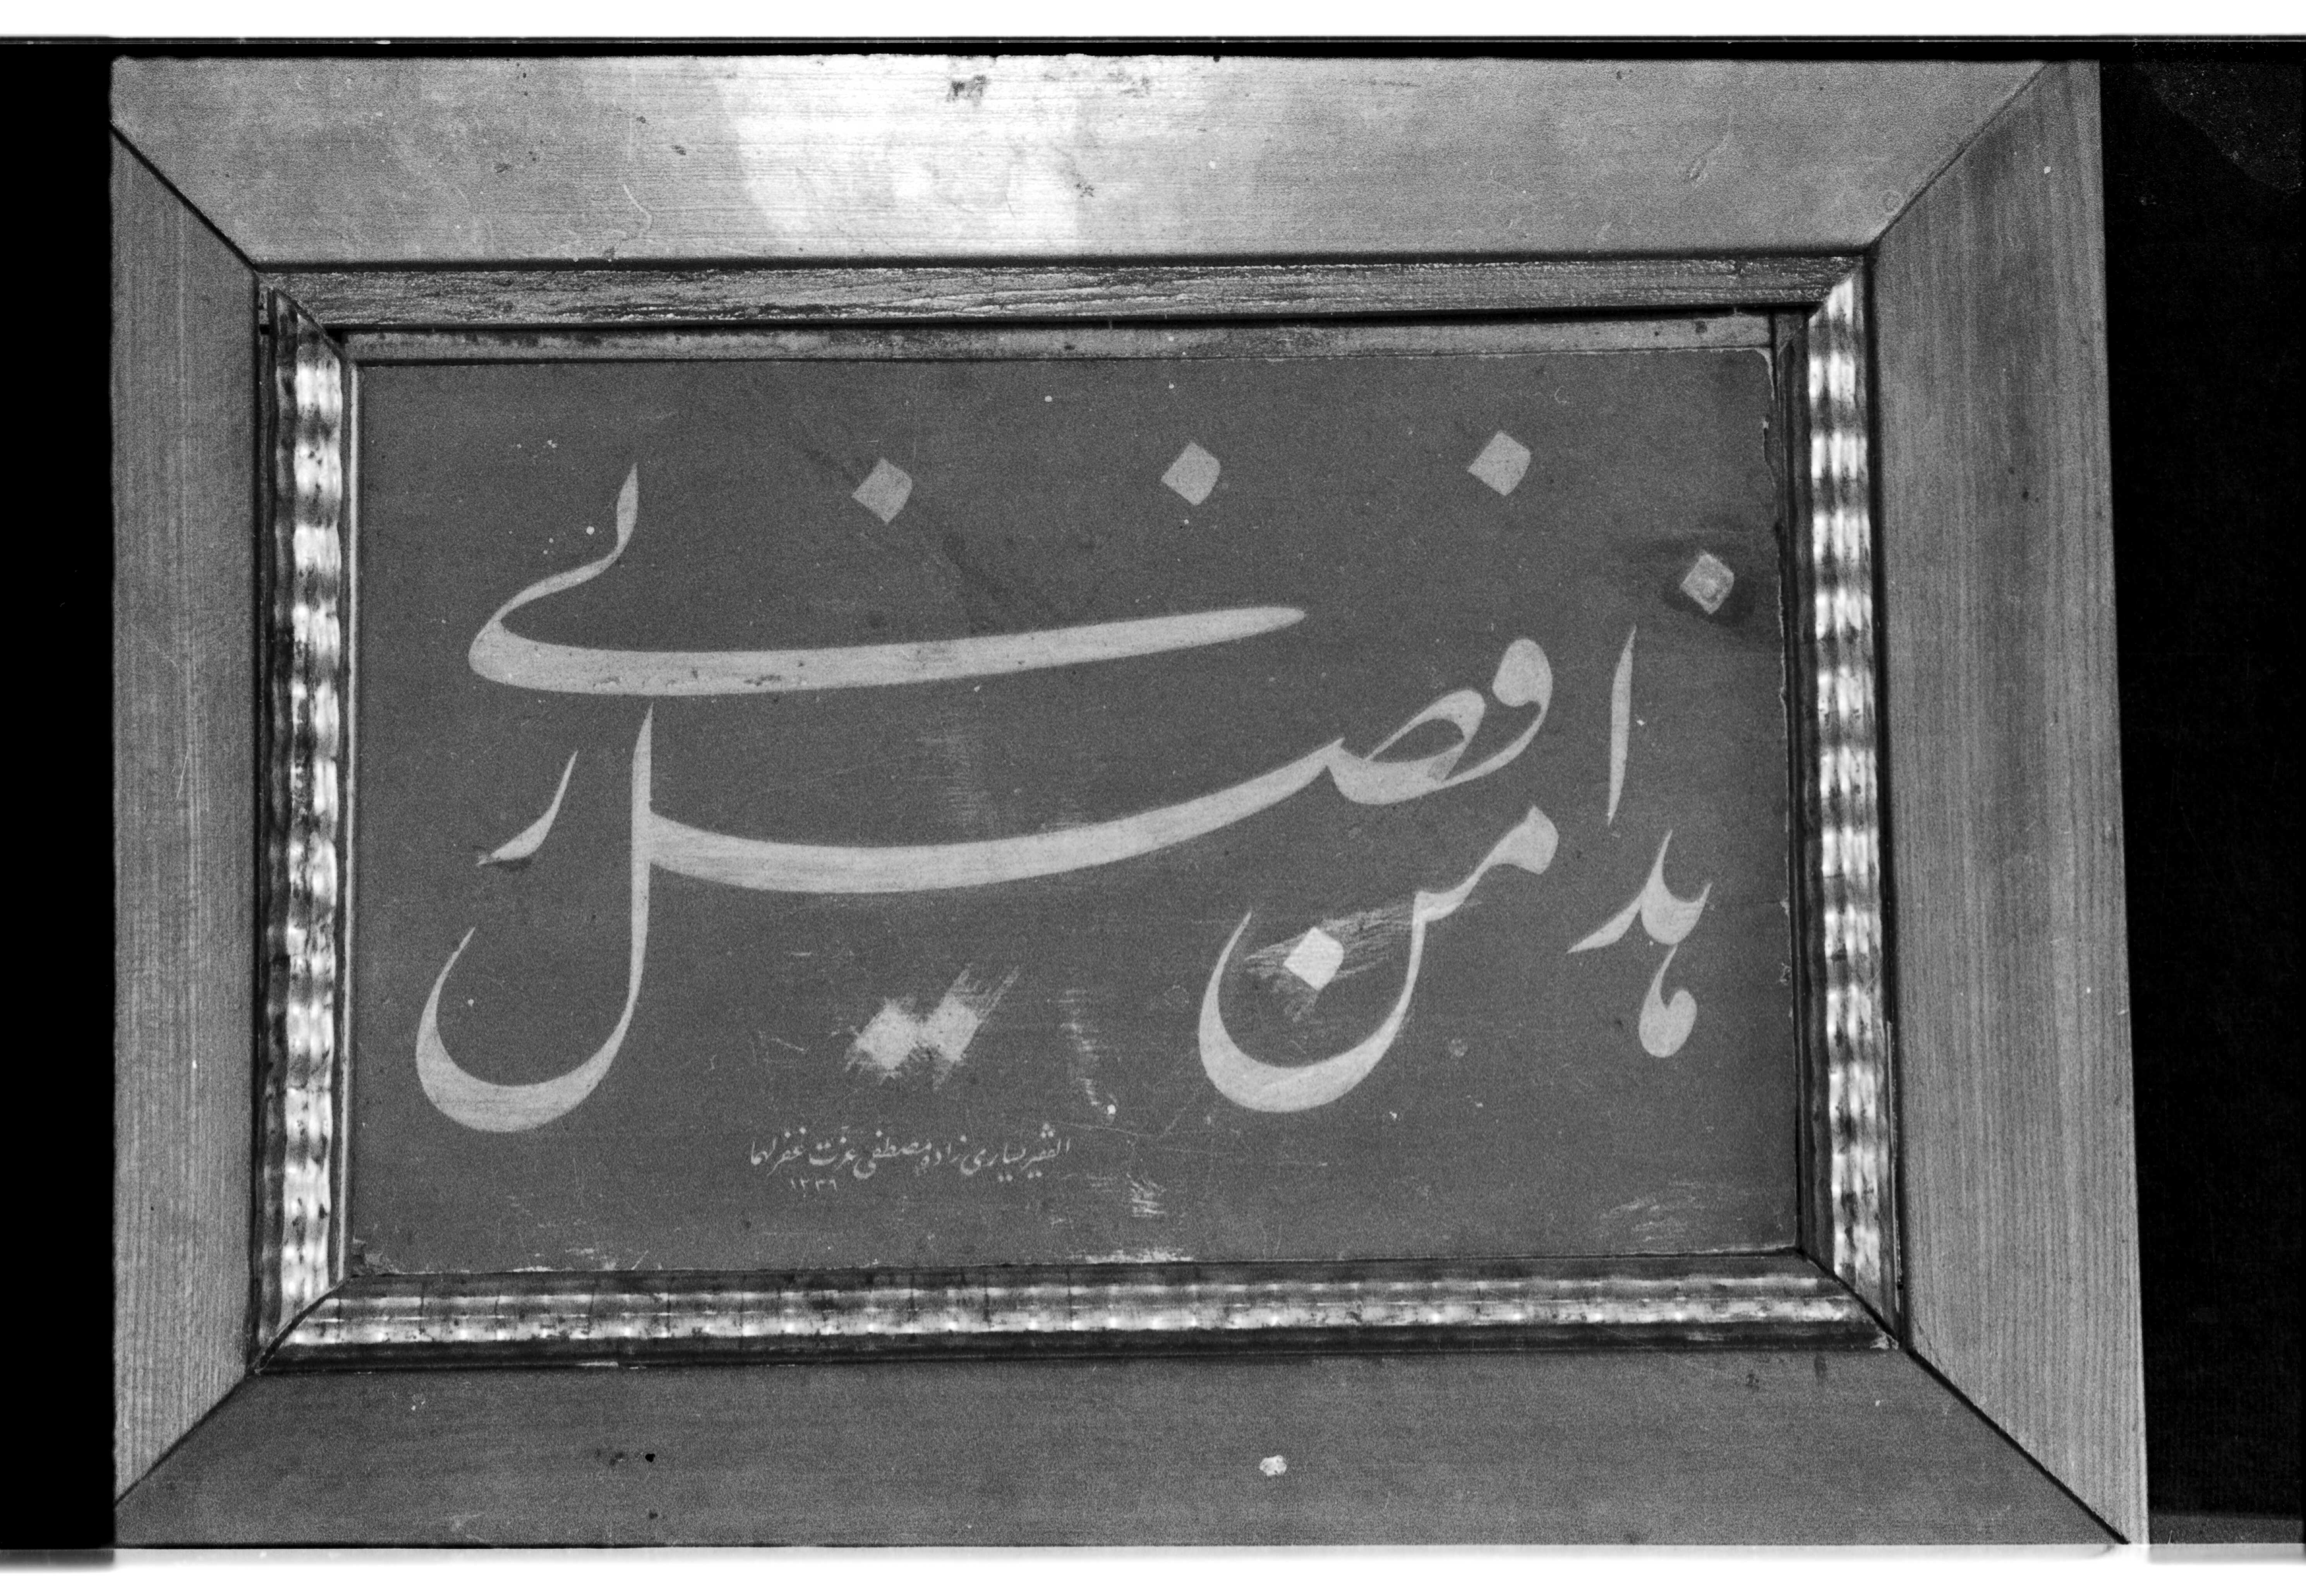 هذا من فضل ربی
الفقیر یساری زاده مصطفی عزت غفر لهما
۱۲۳۹